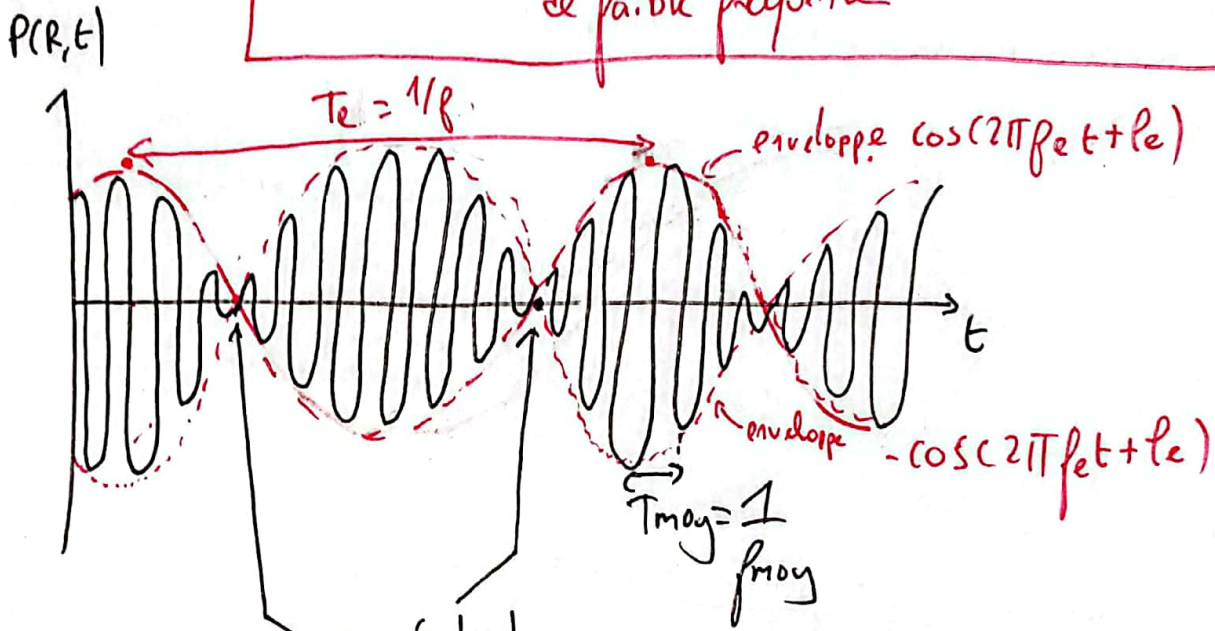 de faible fréquence
P(R,t)
Te = 1/f
enveloppe cos(2πfet+φe)
t
enveloppe -cos(2πfet+φe)
Tmoy = 1/fmoy